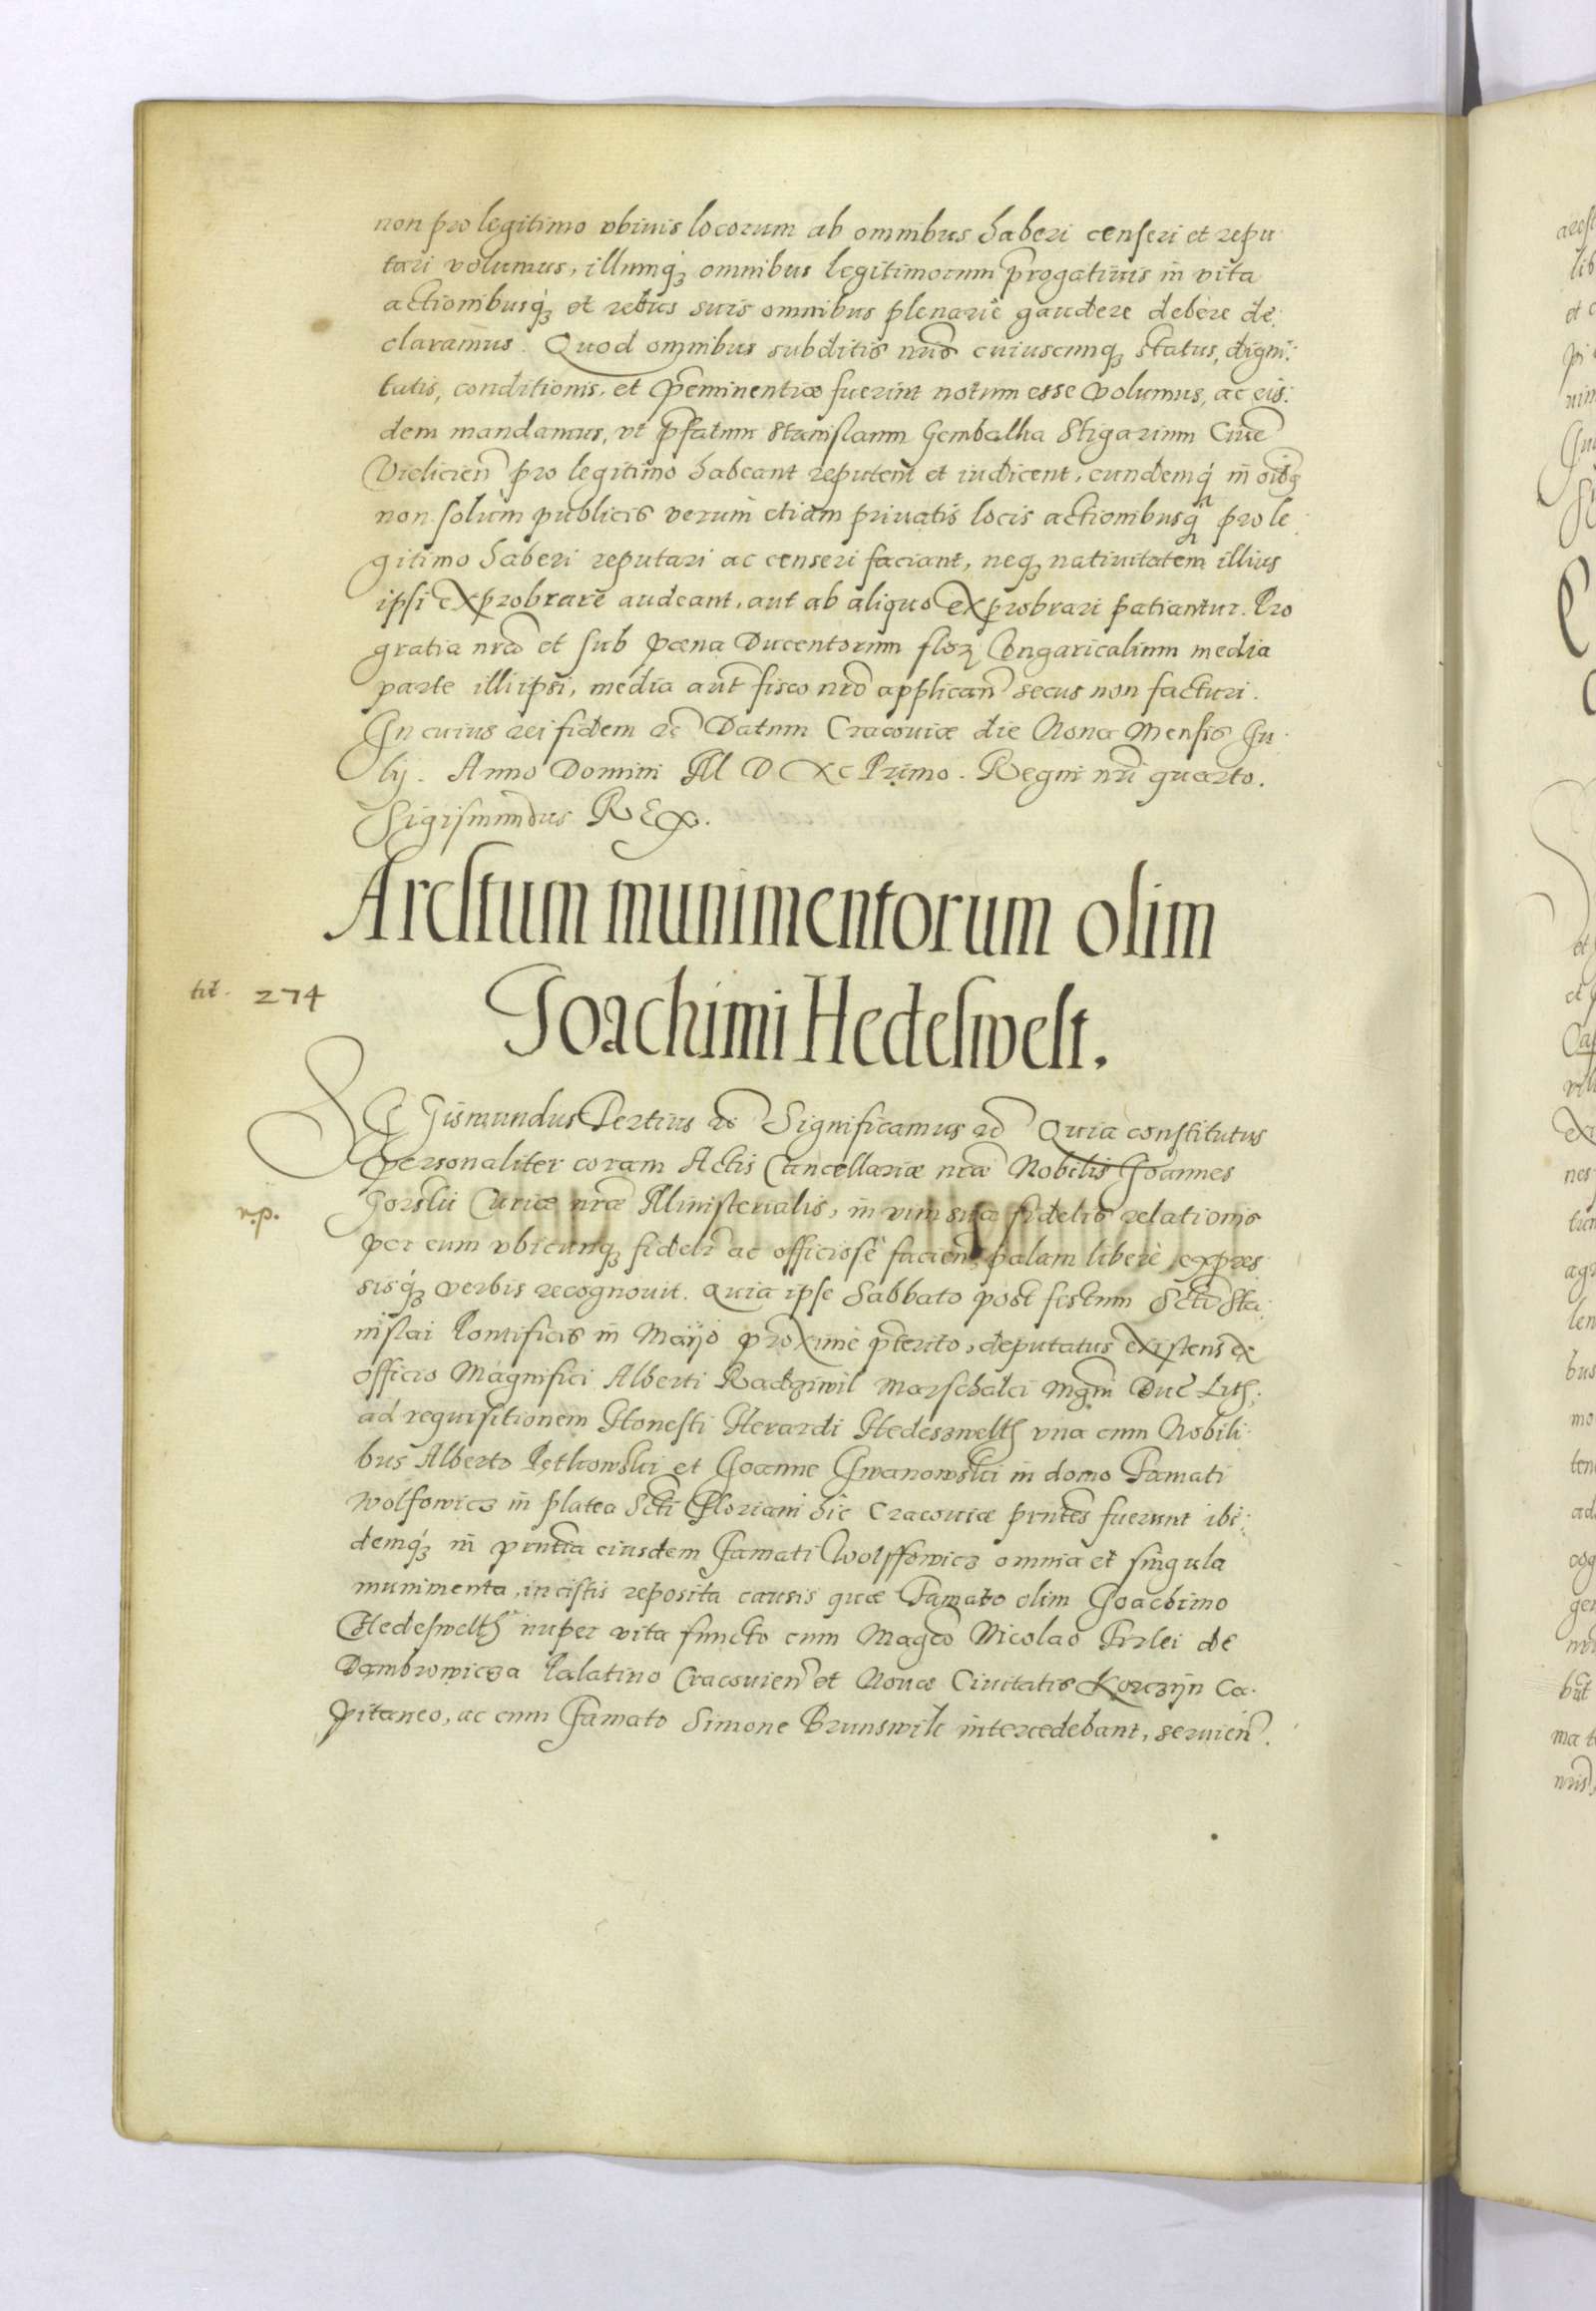 non pro legitimo vbiuis locorum ab omnibus haberi censeri et repu
tari volumus, illumq́ꝫ omnibus legitimorum p̃rogatiuis in vita
actionibusq́ꝫ et rebus suis omnibus plenariè gaudere debere de
claramus. Quod omnibus subditis nr̃is cuiuscunqꝫ status, digni:
tatis, conditionis, et p̃eminentiæ fuerint notum esse volumus, ac eis:
dem mandamus, vt p̃fatum Stanislaum Gembalka Stigarium Ciuẽ
Vielicieñ pro legitimo habeant reputent et iudicent, eundemq́ in oĩbꝫ
non solùm publicis verum etiam priuatis locis actionibusq́ꝫ pro le
gitimo haberi reputari ac censeri faciant, neqꝫ natiuitatem illius
ipsi exprobrare audeant, aut ab aliquo exprobrari patiantur. Pro
gratia nr̃a et sub pœna Ducentorum floꝝ Vngaricalium media
parte illi ipsi, media aut̃ fisco nr̃o applicañ secus non facturi.
In cuius rei fidem ꝛc̃ Datum Cracouiæ die Nona Mensis Ju
lij. Anno Domini M D XC Primo. Regni nr̃i quarto.
Sigismundus REX.
Arestum munimentorum olim
Joachimi Hedeswelt.
tit. 274
SIGismundus Tertius ꝛc̃ Significamus ꝛc̃ Quia constitutus
personaliter coram Actis Cancellariæ nr̃æ Nobilis Joannes
Gorskii Curiæ nr̃æ Ministerialis, in vim suæ fidelis relationis
r.p.
per eum vbicunqꝫ fideli ac officiosè facieñ palam liberè, expres
sisq́ꝫ verbis recognouit. Quia ipse Sabbato post festum Scti Sta
nislai Pontificis in Maijo proximè p̃terito, deputatus existens ex
officio Magnifici Alberti Radziwil Marschalci Mgni Duc̃ Lith:
ad requisitionem Honesti Herardi Hedeszwelth vna cum Nobili
bus Alberto Pethowski et Joanne Iwanowski in domo Famati
Wolfowicz in platea Scti Floriani hic Cracouiæ pr̃ntes fuerunt ibi:
demq́ꝫ in pr̃ntia eiusdem Famati Wolffowicz omnia et singula
munimenta, in cistis reposita causis quæ Famato olim Joachimo
Hedeswelth nuper vita functo cum Magco Nicolao Firlei de
Dambrowicza Palatino Cracouieñ et Nouæ Ciuitatis Korczijn Ca
pitaneo, ac cum Famato Simone Brunswik intercedebant, seruieñ.